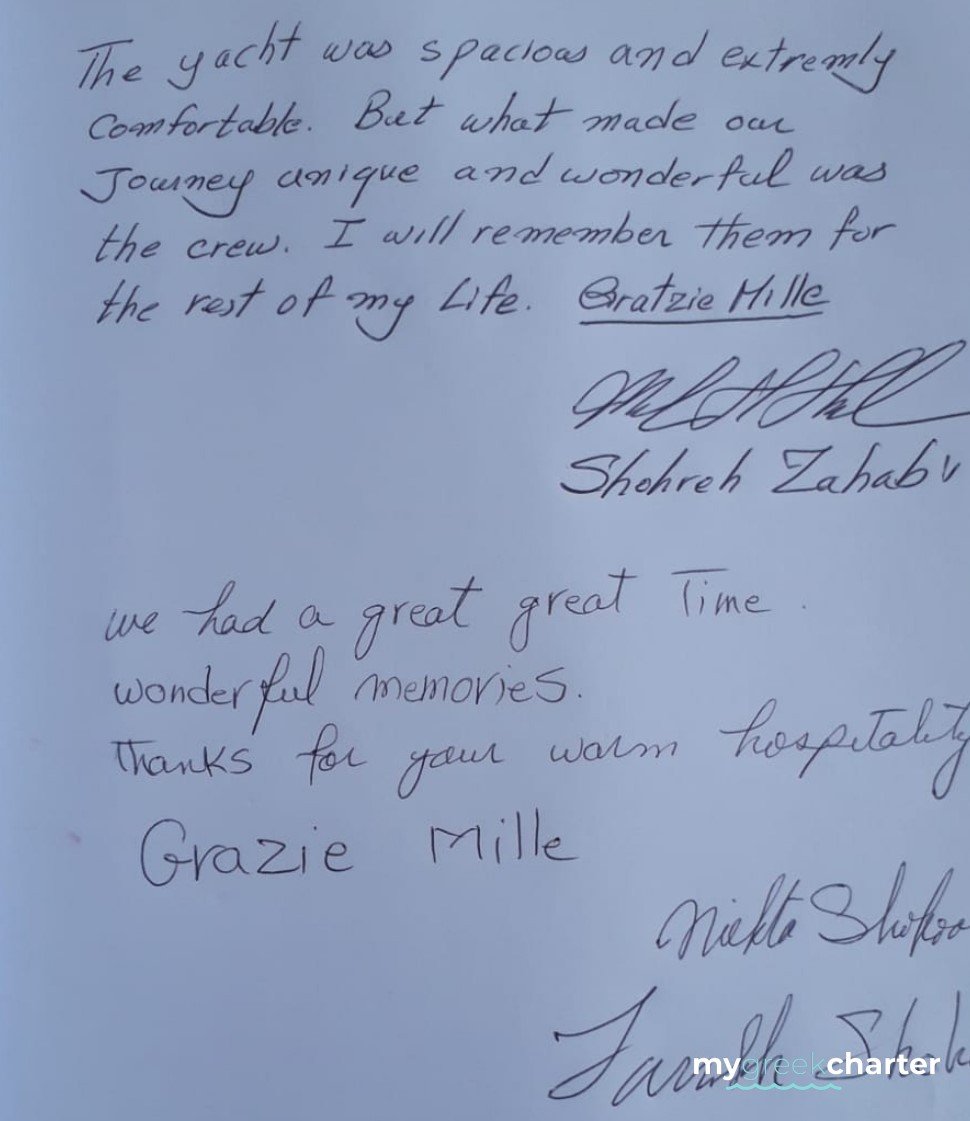 The yacht was spacious and extremly
Comfortable. But what made our
Journey unique and wonderful was
the crew. I will remember them for
the rest of my Life. Gratzie Mille
Shohreh Zahabi
we had a great great Time.
wonderful memories.
Thanks for your warm hospitality
Grazie Mille
Niekta
mygreekcharter